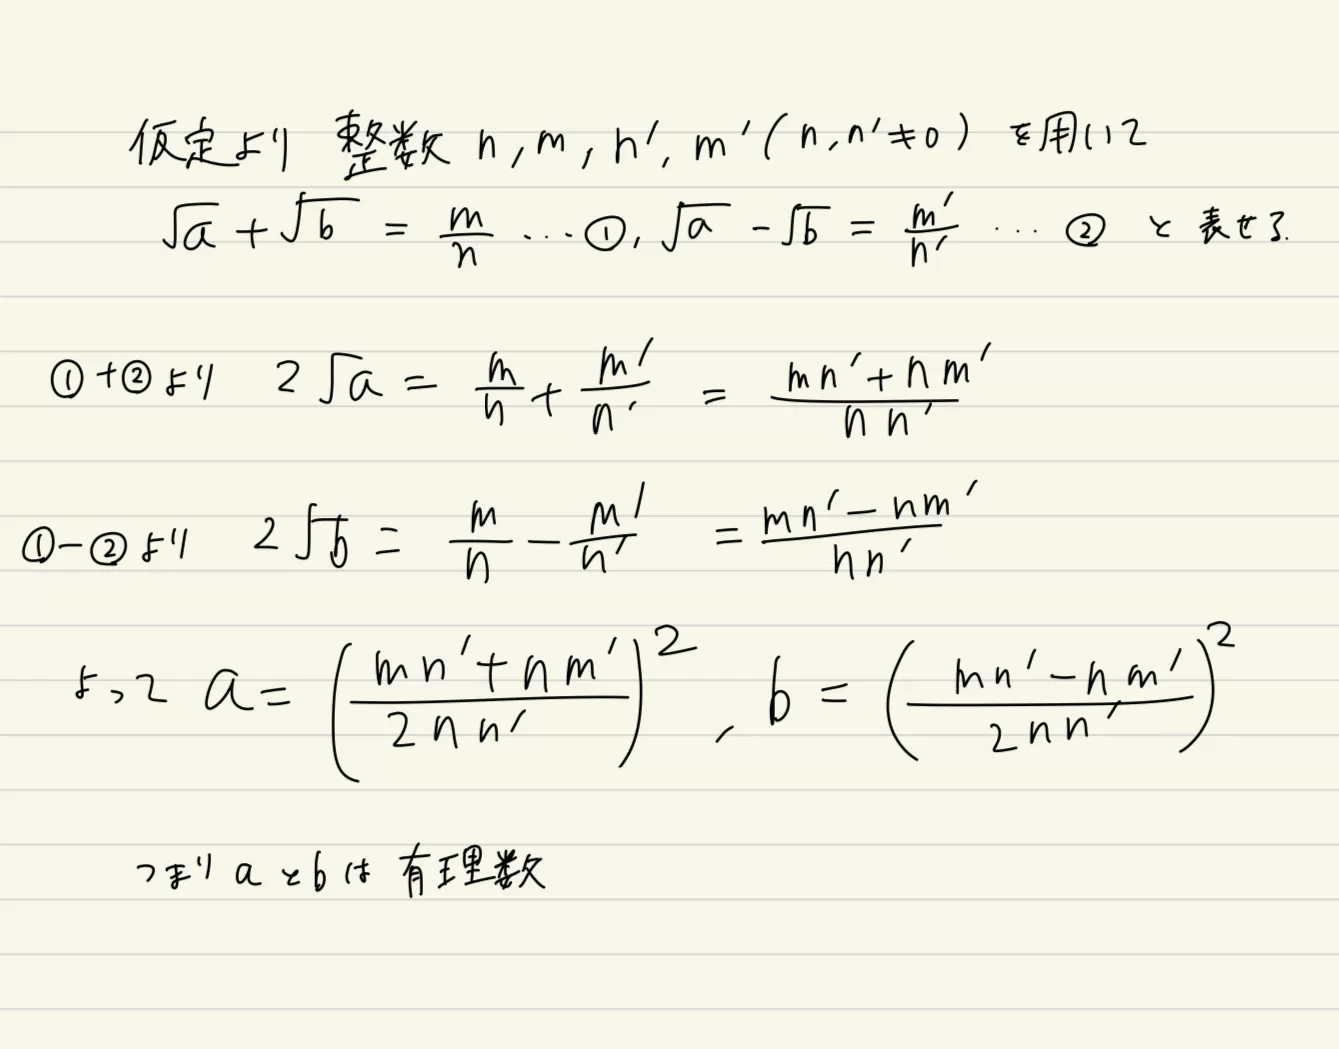 仮定より 整数 n, m, n', m' (n, n' ≠ 0) を用いて
√a + √b = m/n … ①, √a - √b = m'/n' … ② と表せる.
①+②より 2√a = m/n + m'/n' = (mn' + nm')/(nn')
①-②より 2√b = m/n - m'/n' = (mn' - nm')/(nn')
よって a = ((mn' + nm')/(2nn'))², b = ((mn' - nm')/(2nn'))²
つまり aとbは 有理数